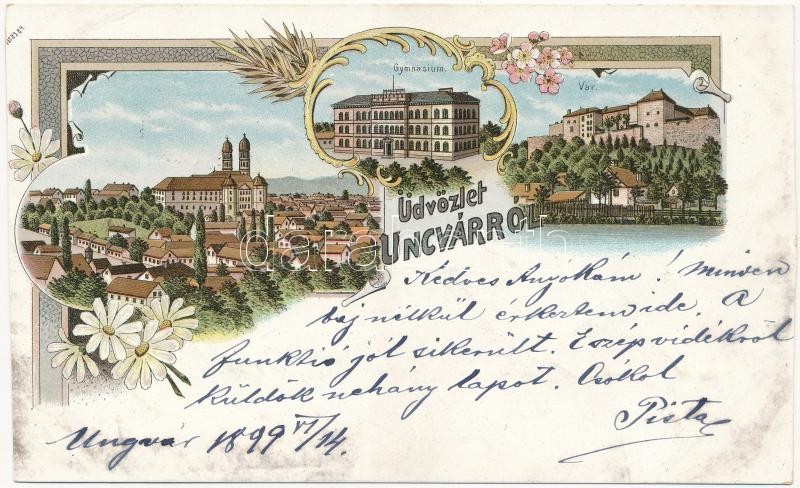 Gymnasium.
Vár.
Üdvözlet
UNGVÁRRÓL
Kedves Anyókám! Minden
baj nélkül érkeztem ide. A
funktió jól sikerült. E szép vidékről
küldök nehány lapot. Csókol
Pista
Ungvár 1899 VI/14.
darabanth